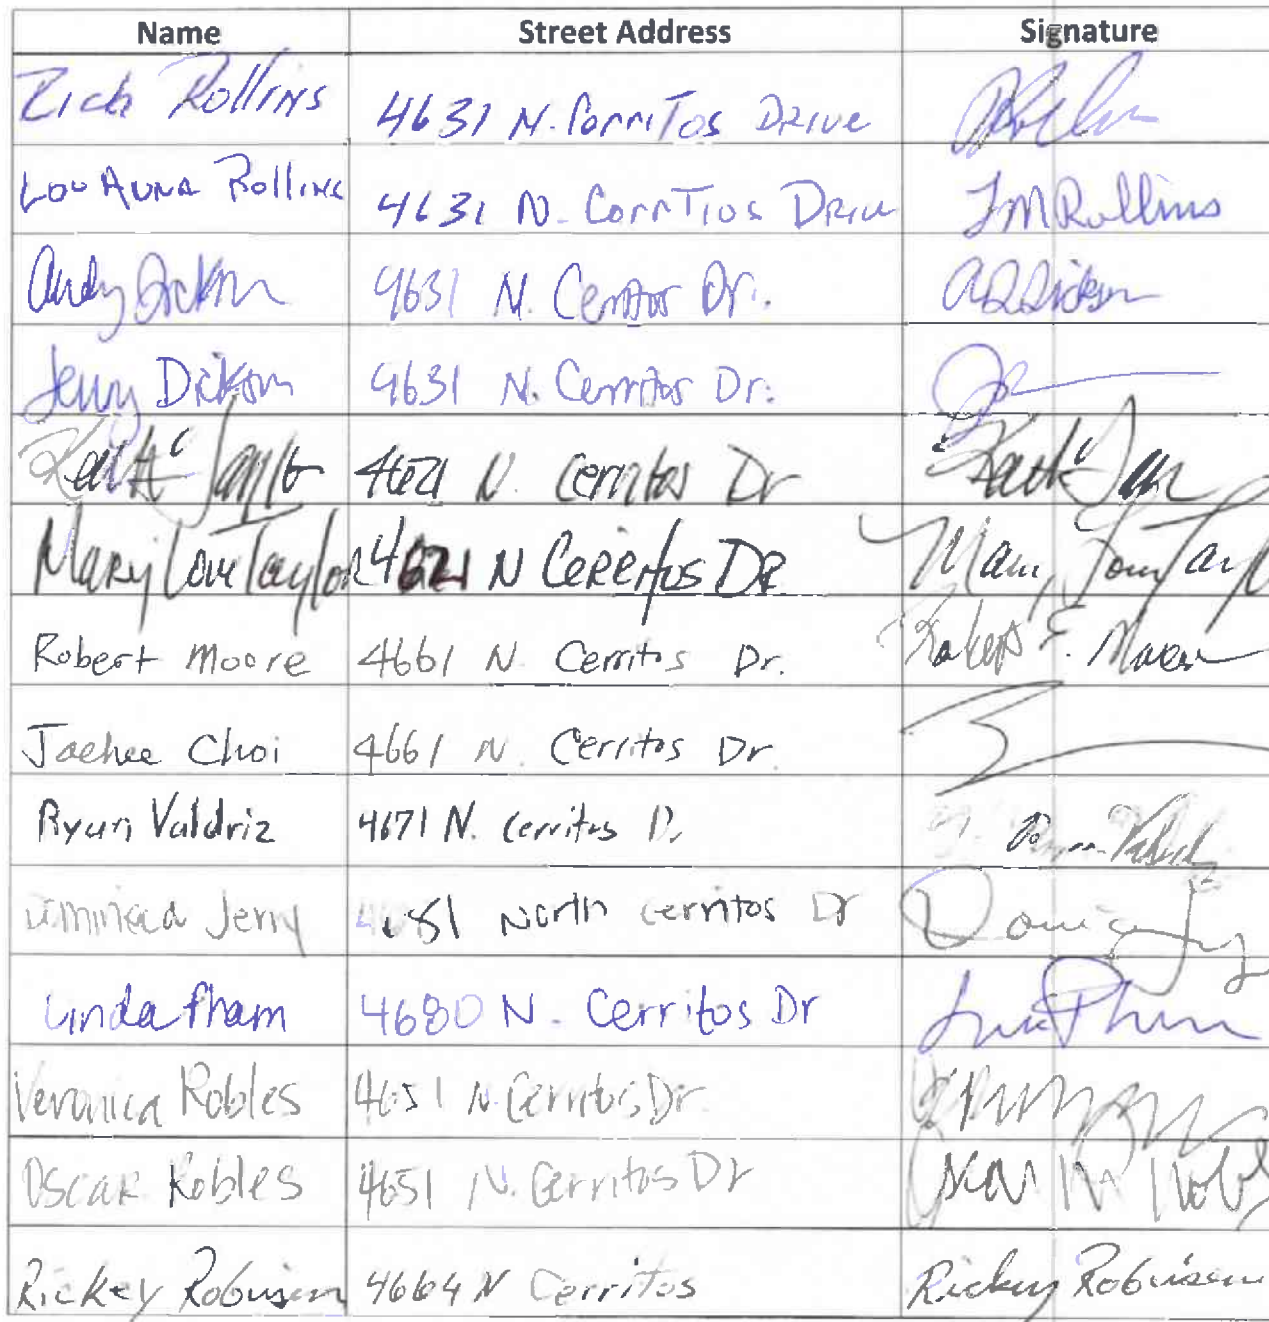 Name Street Address Signature
Rick Rollins 4631 N. Corritos Drive
Lou Anna Rollins 4631 N. Corrtios Drive LM Rollins
Andy Dickson 4631 N. Cerritos Dr. A D Dickson
Jerry Dickson 4631 N. Cerritos Dr.
Keith Taylor 4621 N. Cerritos Dr Keith
Mary Love Taylor 4621 N Cereritos DR. Mary
Robert Moore 4661 N Cerritos Dr. Robert E. Moore
Jaehee Choi 4661 N. Cerritos Dr.
Ryan Valdriz 4671 N. Cerritos D.
Jerry 4681 North Cerritos Dr
Linda Pham 4680 N. Cerritos Dr
Veronica Robles 4651 N Cerritos, Dr.
Oscar Robles 4651 N. Cerritos Dr
Rickey Robinson 4664 N Cerritos Rickey Robinson